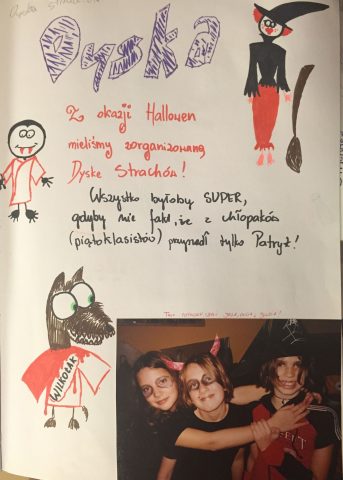 Dyska
Z okazji Hallowen
mieliśmy zorganizowaną
Dyske Strachów!
Wszystko byłoby SUPER,
gdyby nie fakt, że z chłopaków
(piątoklasistów) przyszedł tylko Patryź!
WILKOŁAK